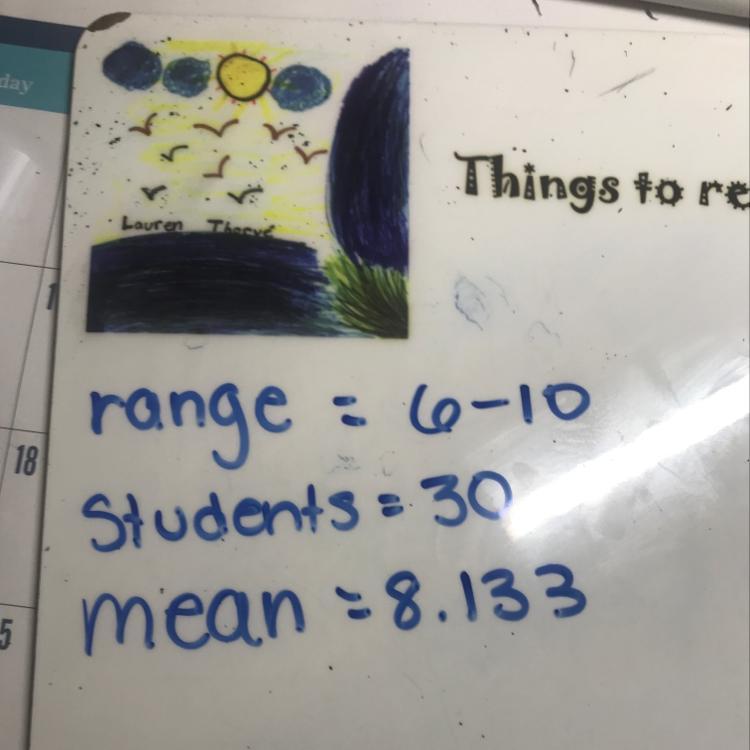 day
Lauren
Things to re
1
range = 6-10
18
students = 30
mean = 8.133
5